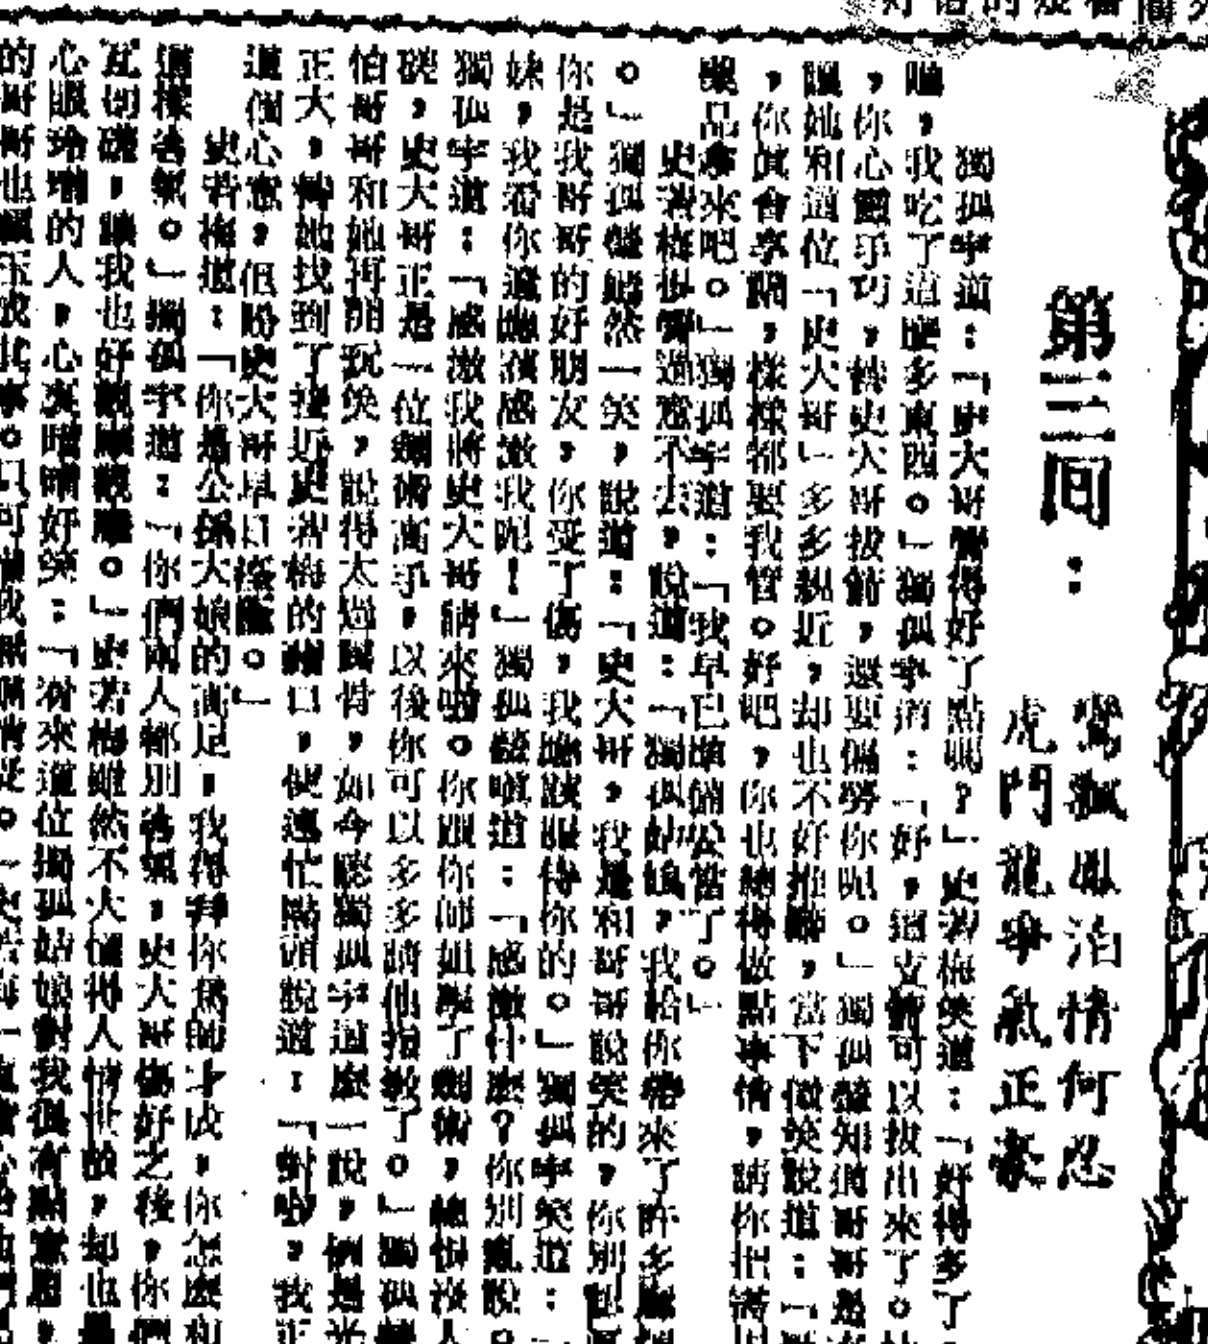 第三回：
鸞飄鳳泊情何忍
虎鬥龍爭氣正豪
獨孤宇道：「史大哥覺得好了點嗎？」史若梅笑道：「好得多了
啦，我吃了這麼多東西。」獨孤宇道：「好，這支箭可以拔出來了。
，你心靈手巧，替史大哥拔箭，還要偏勞你呢。」獨孤瑩知道哥哥是
讓她和這位「史大哥」多多親近，却也不好推辭，當下微笑說道：「
，你真會享閒，樣樣都要我管。好吧，你也總得做點事情，請你把需
藥品拿來吧。」獨孤宇道：「我早已準備妥當了。」
史若梅過意不去，說道：「獨孤姑娘，我給你帶來了許多麻煩
。」獨孤瑩嫣然一笑，說道：「史大哥，我是和哥哥說笑的，你別認真
你是我哥哥的好朋友，你受了傷，我應該服侍你的。」獨孤宇笑道：「
妹，我看你還應該感激我呢！」獨孤瑩嗔道：「感激什麼？你別亂說。
獨孤宇道：「感激我將史大哥請來啦。你跟你師姐學了劍術，總恨沒人
磋，史大哥正是一位劍術高手，以後你可以多多請他指教了。」獨孤瑩
怕哥哥和她再開玩笑，說得太過露骨，如今聽獨孤宇這麼一說，倒是光
正大，替她找到了接近史若梅的藉口，便連忙點頭說道：「對啦，我正
這個心意，但盼史大哥早日痊癒。」
史若梅道：「你是公孫大娘的高足，我得拜你為師才成，你怎麼和
這樣客氣。」獨孤宇道：「你們兩人都別客氣，史大哥傷好之後，你們
互切磋，讓我也好觀摩觀摩。」史若梅雖然不大懂得人情世故，却也是
心眼玲瓏的人，心裏暗暗好笑：「看來這位獨孤姑娘對我倒有點意思，
的哥哥也